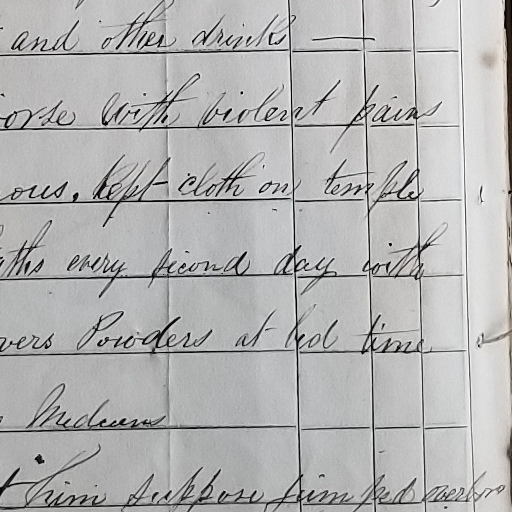 and other drinks —
orse with violent pains
ous. Kept cloth on temple
ths every second day with
vers Powders at bed time
him suppose jumped overbo